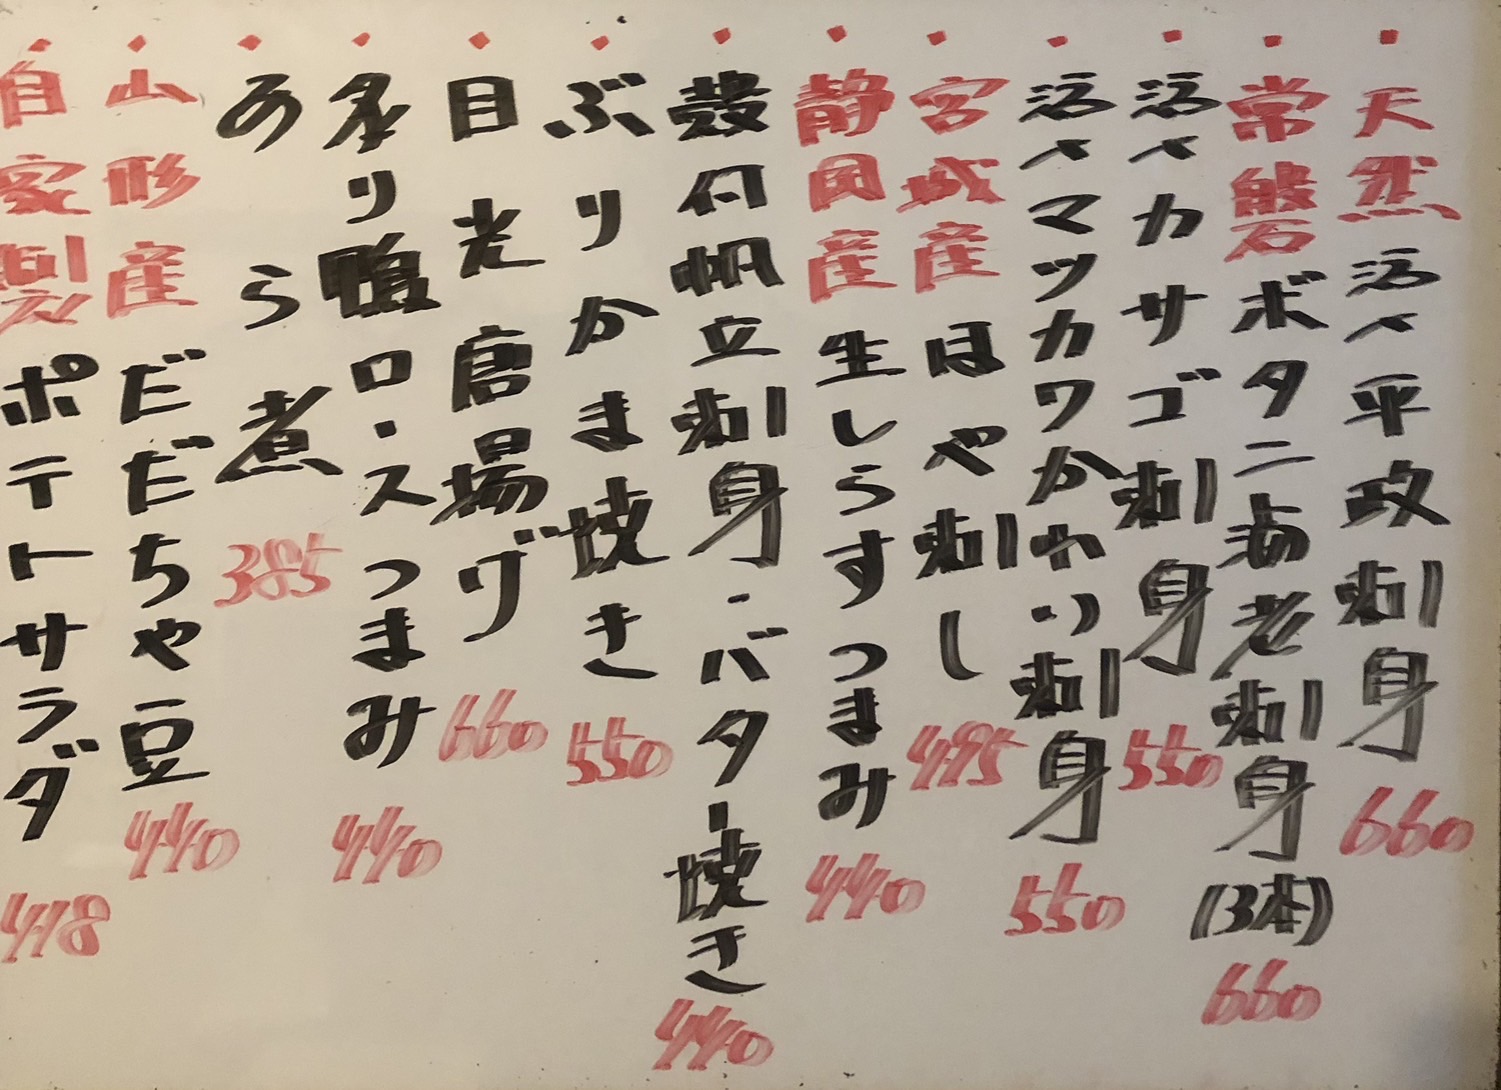 天然活〆平政刺身 660
常磐ボタニ海老刺身(3本) 660
活〆カサゴ刺身 550
活〆マツカワかわり刺身 550
宮城産ほや刺し 495
静岡産生しらすつまみ 440
殻付帆立刺身・バター焼き 440
ぶりかま焼き 550
目光唐揚げ 660
炙り鴨ロ・スつまみ 440
あら煮 385
山形産だだちゃ豆 440
自家製ポテトサラダ 418